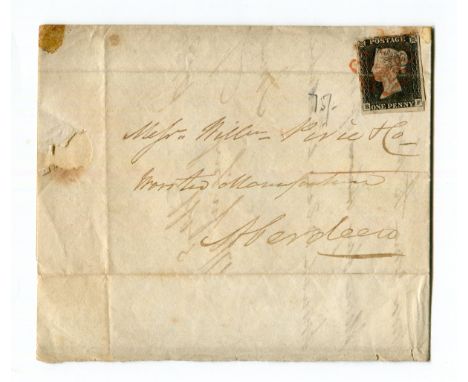 POSTAGE
ONE PENNY
75/-
Messrs Pirie & Co
Worsted Manufacturers
Aberdeen